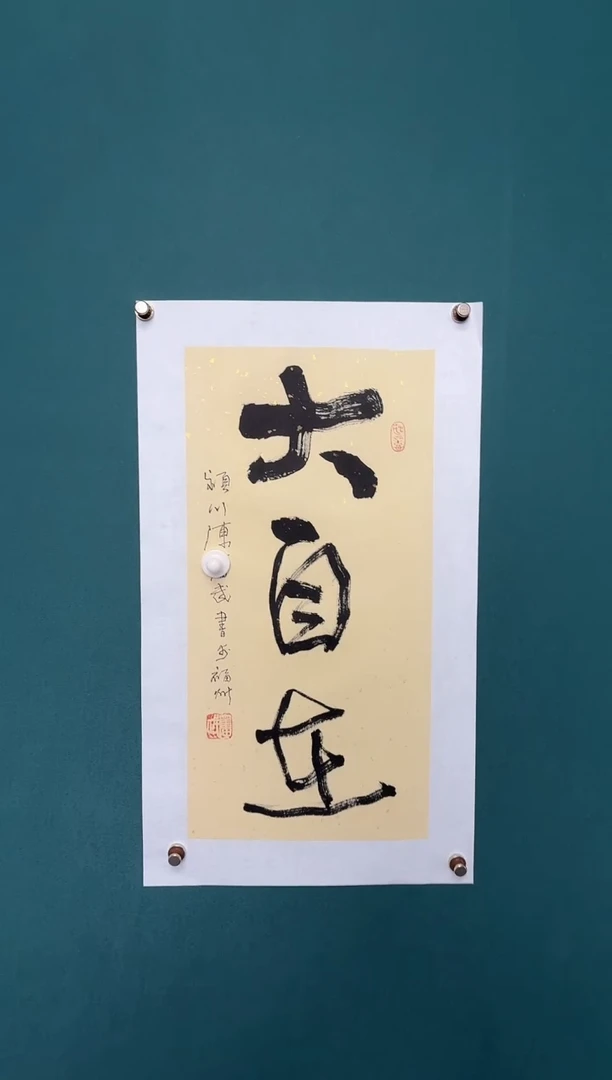 大自在
颖川陳武書於福州